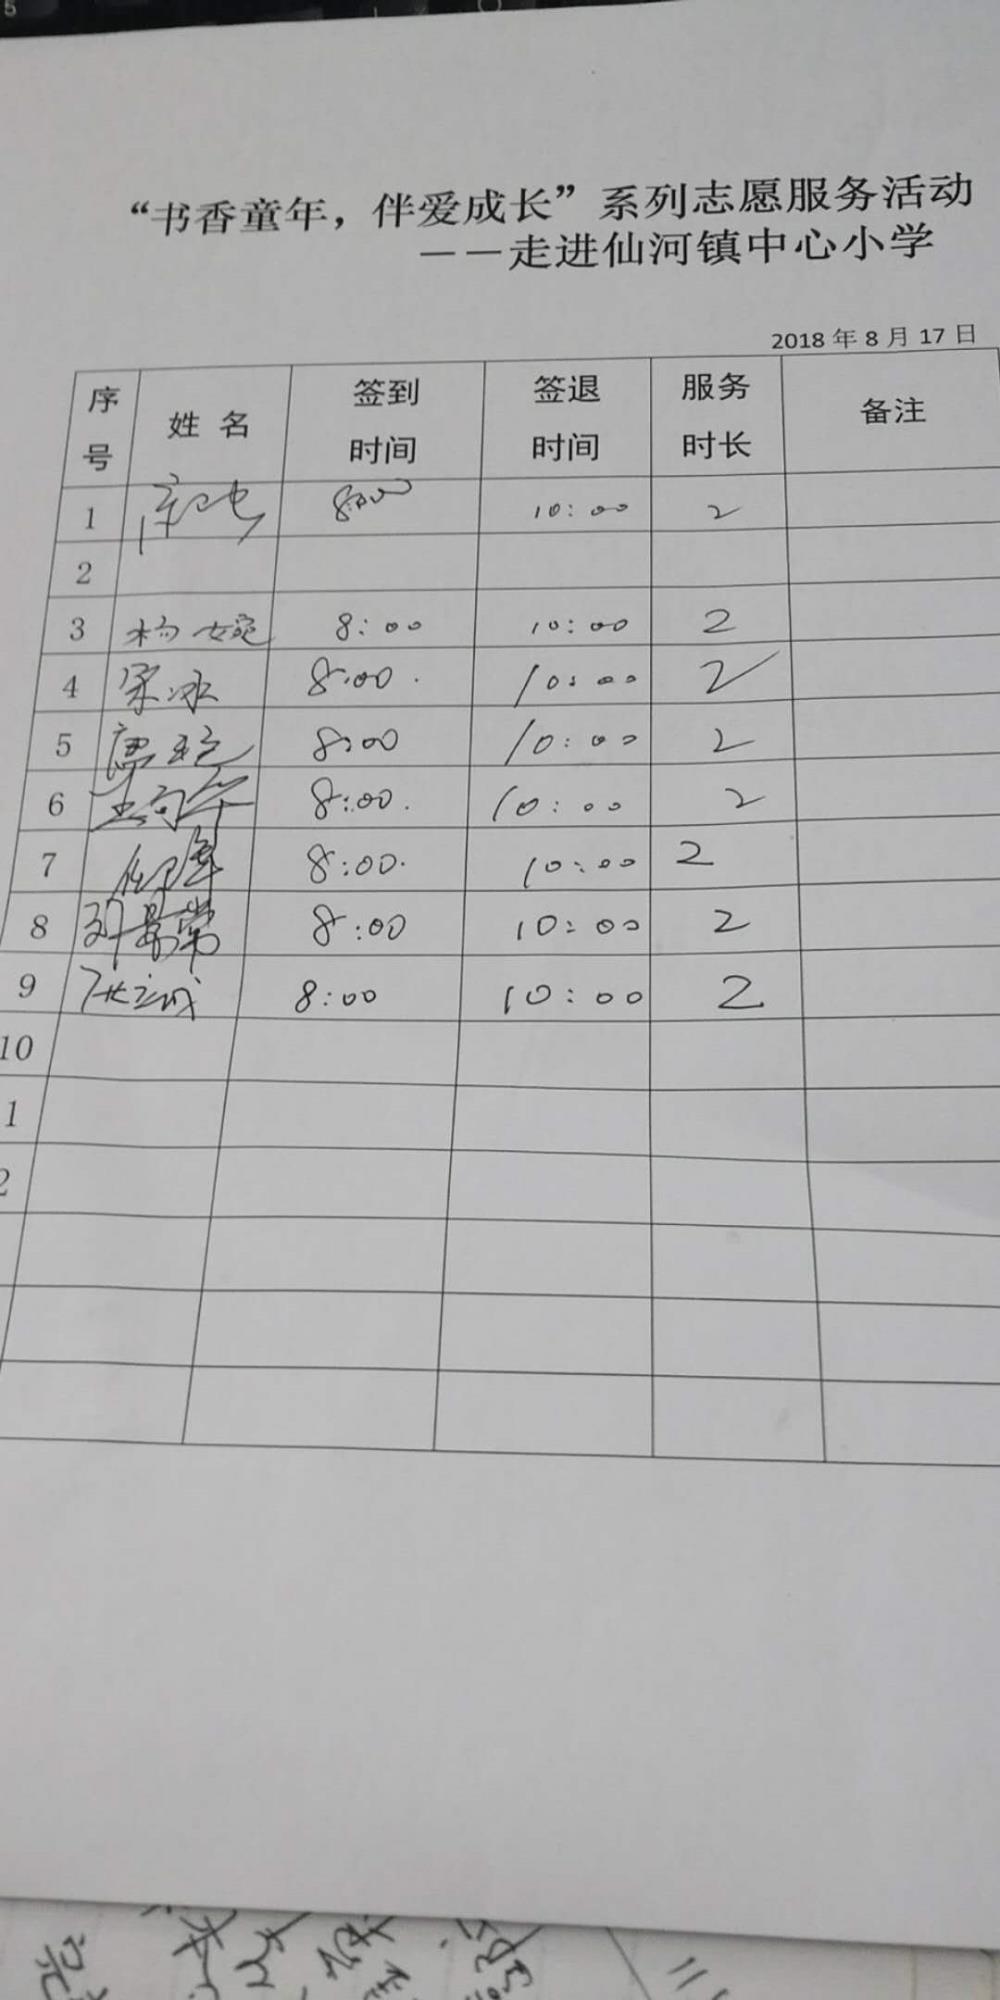 “书香童年，伴爱成长”系列志愿服务活动
——走进仙河镇中心小学
2018 年 8 月 17 日
序号 姓 名 签到时间 签退时间 服务时长 备注
1 8:00 10:00 2
2
3 杨婉 8:00 10:00 2
4 宋冰 8:00 10:00 2
5 8:00 10:00 2
6 8:00 10:00 2
7 8:00 10:00 2
8 8:00 10:00 2
9 8:00 10:00 2
10
1
2